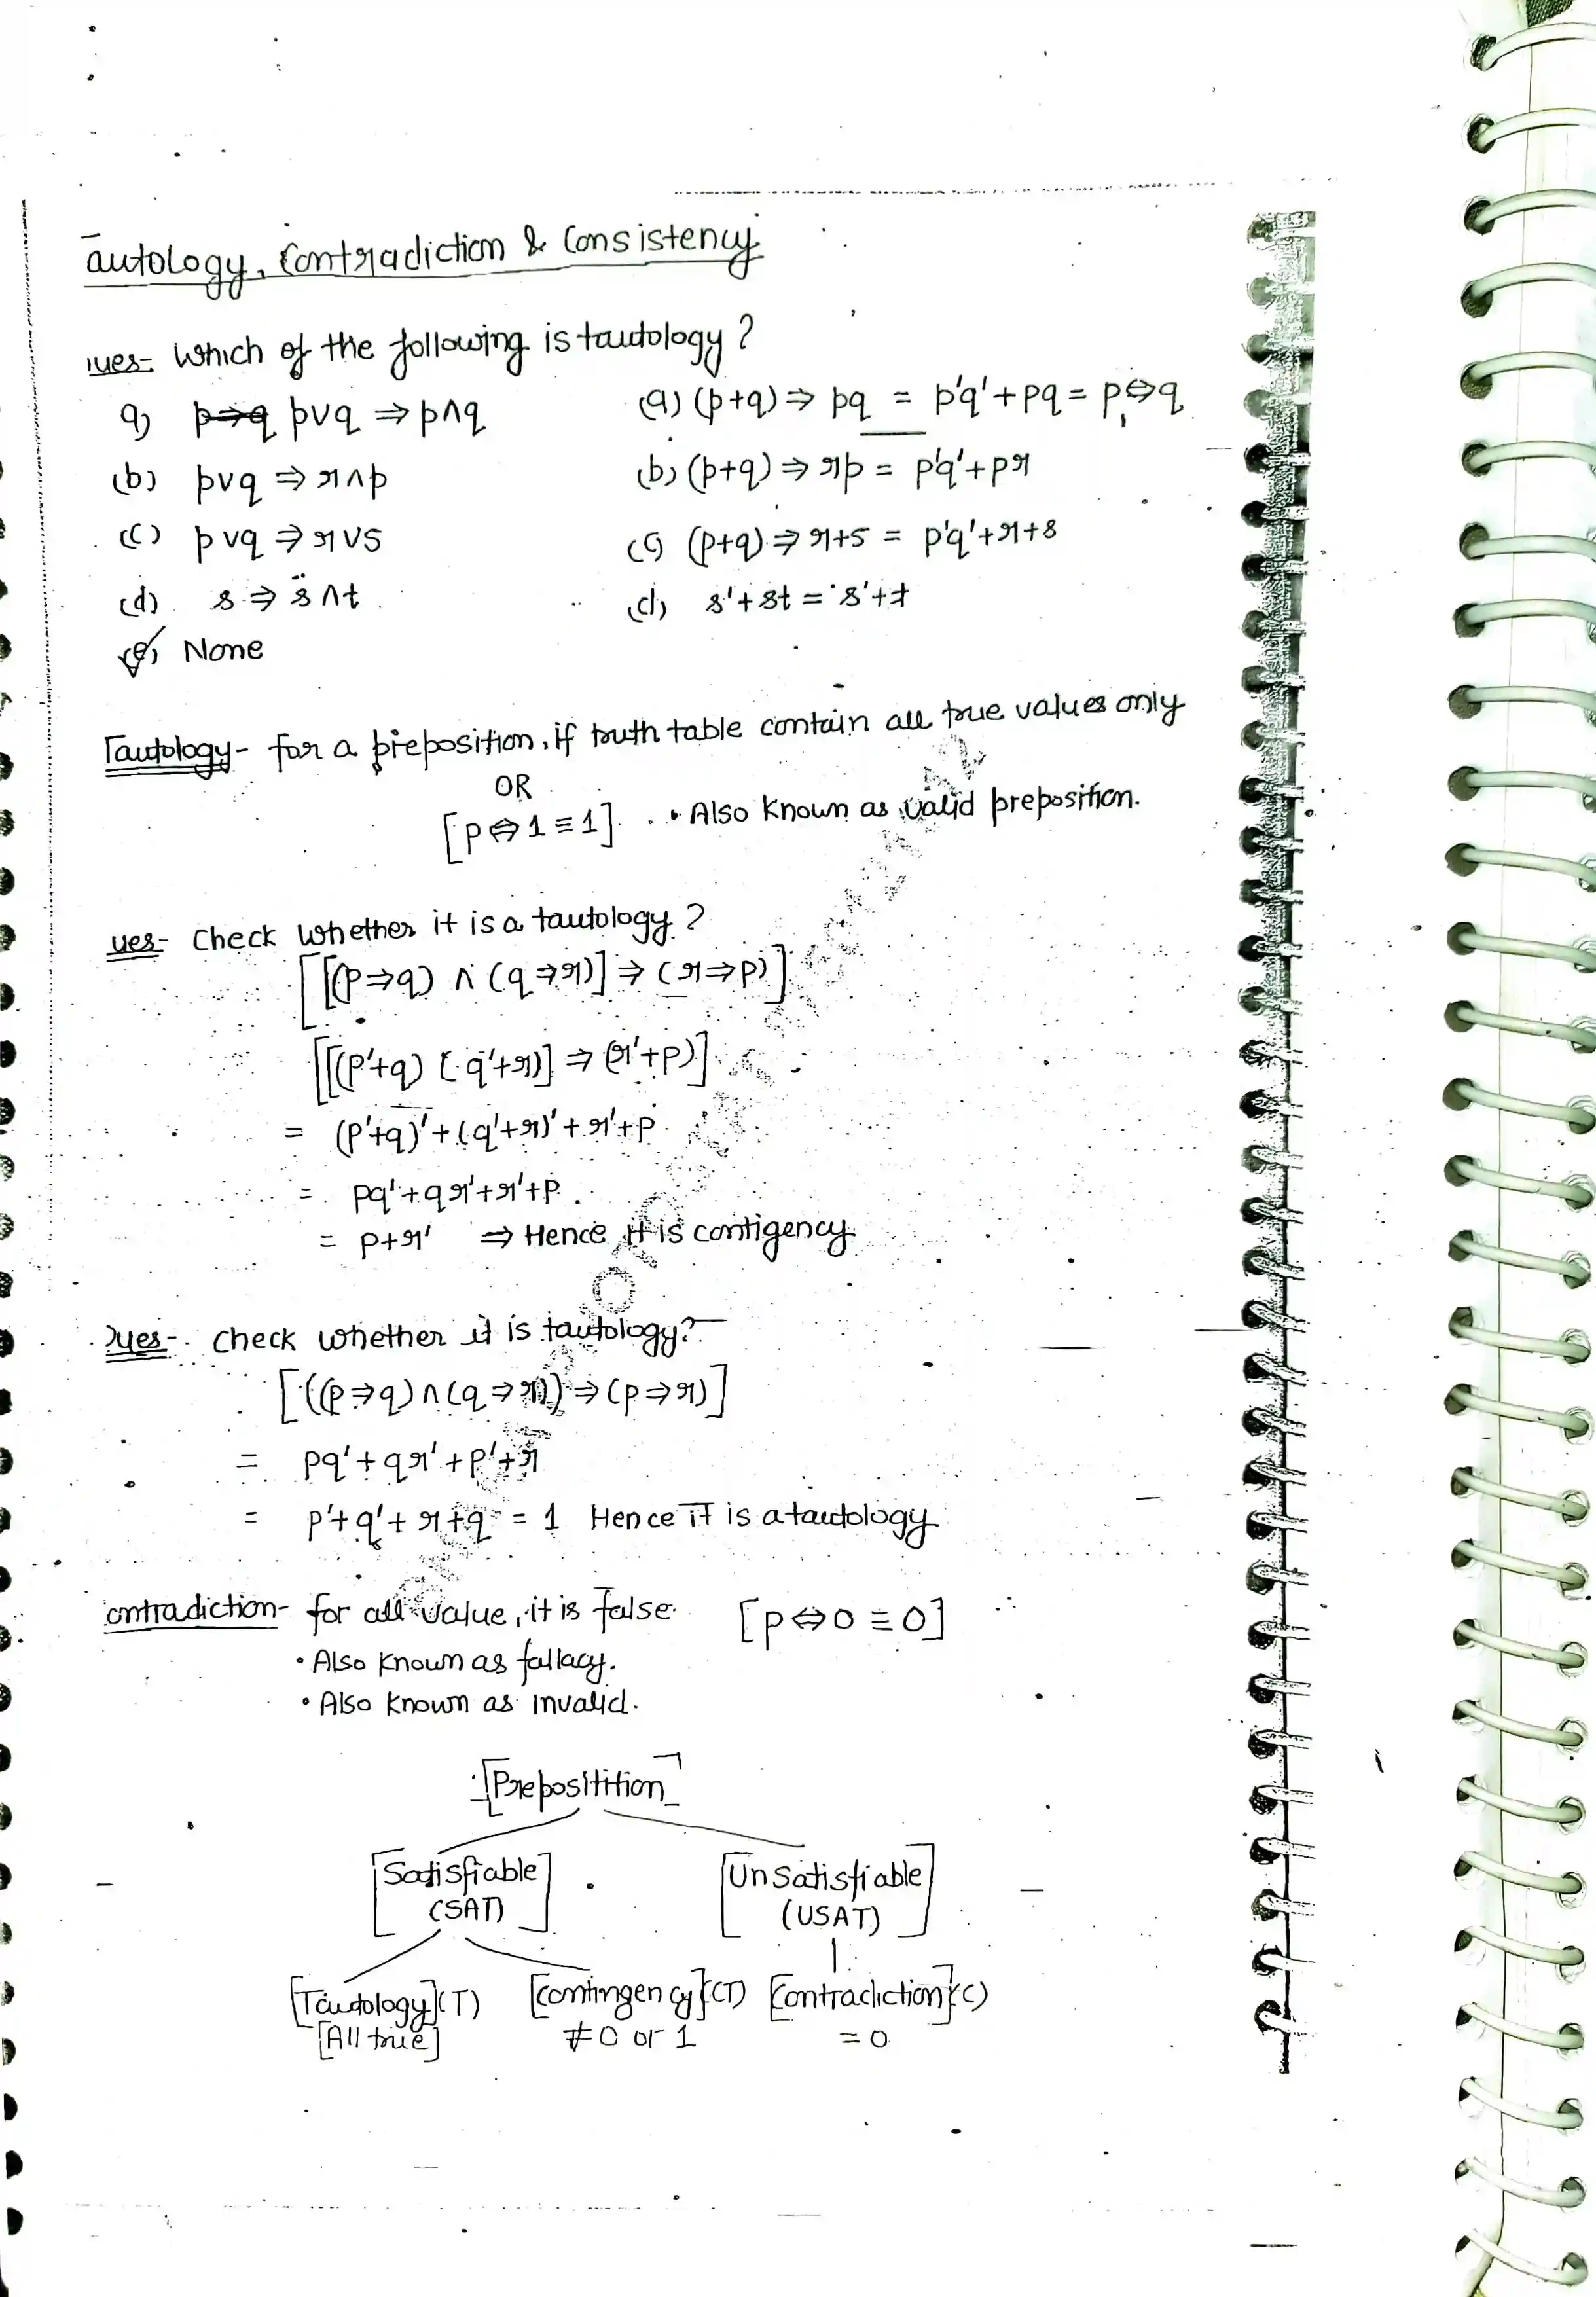 autology, Contradiction & Consistency
ues- Which of the following is tautology?
a) p⇒q p∨q ⇒ p∧q (a) (p+q) ⇒ pq = p'q'+pq = p⇔q
(b) p∨q ⇒ r∧p (b) (p+q) ⇒ rp = p'q'+pr
(c) p∨q ⇒ r∨s (c) (p+q) ⇒ r+s = p'q'+r+s
(d) s ⇒ s∧t (d) s'+st = s'+t
(e) None
Tautology- for a preposition, if truth table contain all true values only
OR
[p⇔1≡1] • Also known as valid preposition.
ues- Check whether it is a tautology?
[[(p⇒q) ∧ (q⇒r)] ⇒ (r⇒p)]
[[(p'+q) (q'+r)] ⇒ (r'+p)]
= (p'+q)'+(q'+r)'+r'+p
= pq'+qr'+r'+p
= p+r' ⇒ Hence it is contigency
ues- Check whether it is tautology?
[((p⇒q)∧(q⇒r)) ⇒ (p⇒r)]
= pq'+qr'+p'+r
= p'+q'+r+q = 1 Hence it is a tautology
ontradiction- for all value, it is false [p⇔0≡0]
• Also known as fallacy.
• Also known as invalid.
[Prepositition]
[Satisfiable] [UnSatisfiable]
(SAT) (USAT)
[Tautology](T) [contingency](CT) [Contradiction](C)
[All true] ≠0 or 1 =0